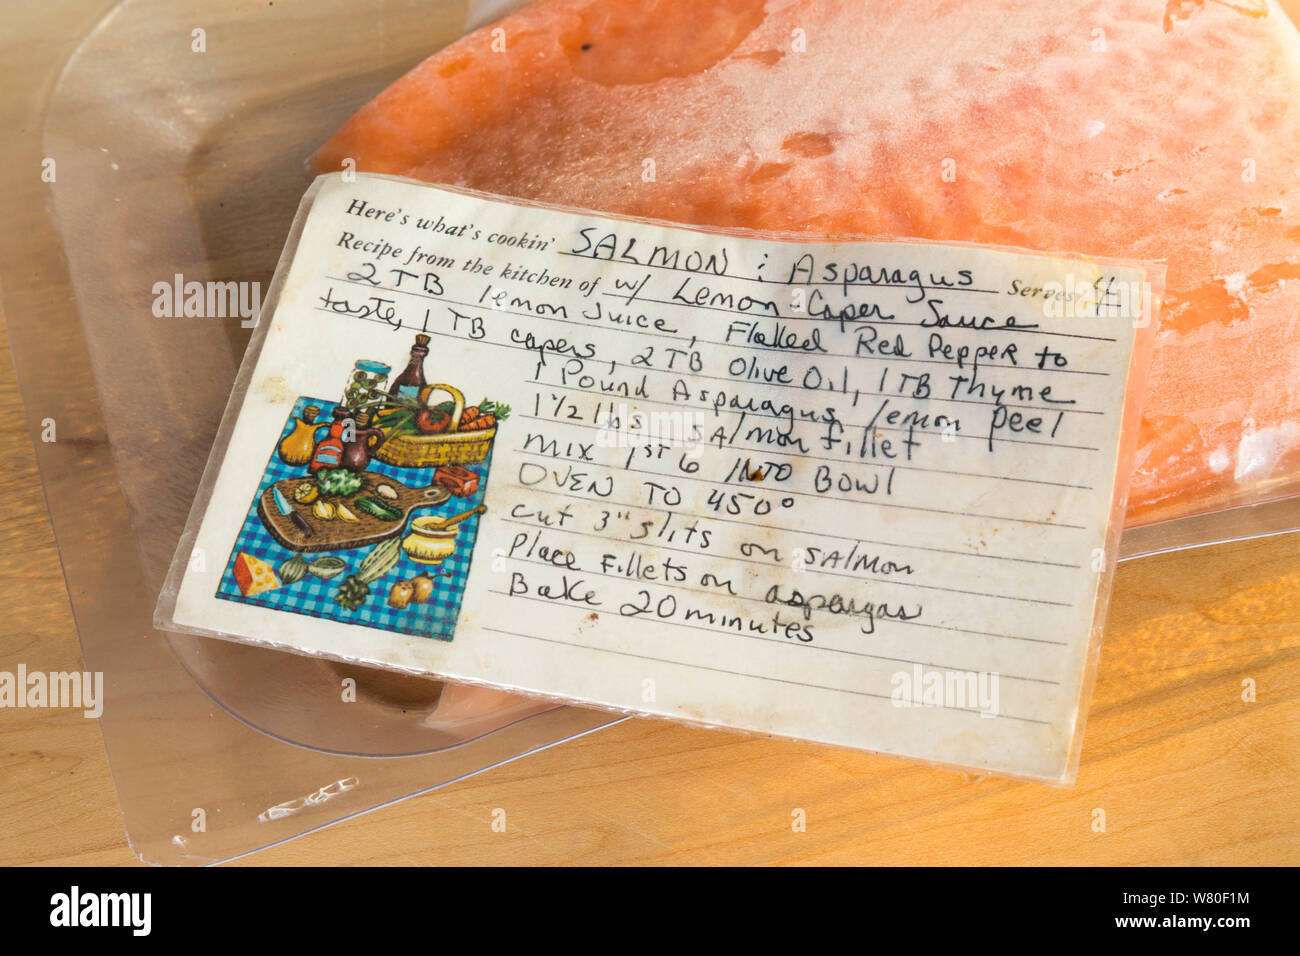 Here's what's cookin' SALMON : Asparagus Serves: 4
Recipe from the kitchen of w/ Lemon-Caper Sauce
2 TB lemon Juice, Flaked Red Pepper to
taste, 1 TB capers, 2 TB Olive Oil, 1 TB Thyme
1 Pound Asparagus, lemon peel
1 1/2 lbs SAlmon fillet
MIX 1ST 6 INTO BOWl
OVEN TO 450°
Cut 3" slits on SAlmon
Place Fillets on aspargas
Bake 20 minutes
alamy
Image ID: W80F1M
www.alamy.com